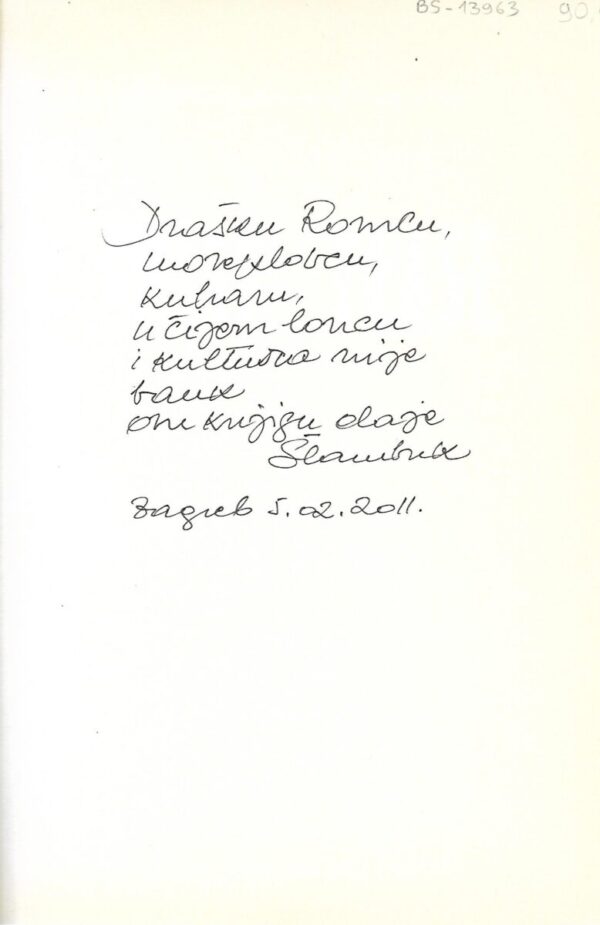 BS-13963 90,
Drašku Romcu,
moreplovcu,
kuharu,
u čijem loncu
i kultura nije
bauk
ovu knjigu daje
Zagreb 5.02.2011.